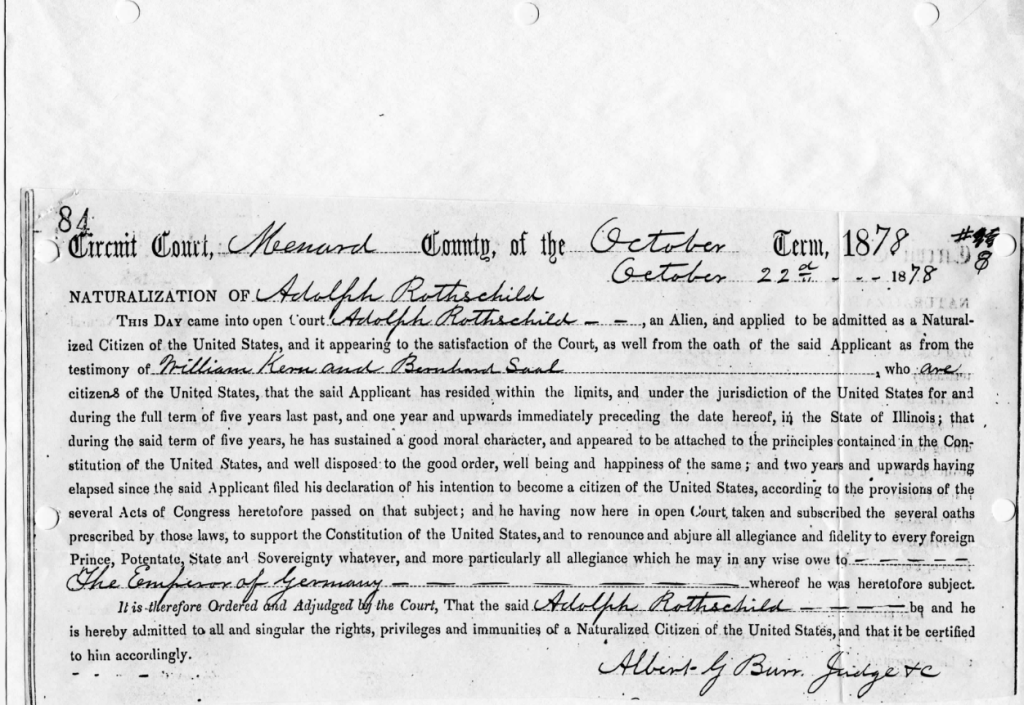 84
Circuit Court, Menard County, of the October Term, 1878
8
October 22d - - - 1878
NATURALIZATION OF Adolph Rothschild
THIS DAY came into open Court Adolph Rothschild - - , an Alien, and applied to be admitted as a Natural-
ized Citizen of the United States, and it appearing to the satisfaction of the Court, as well from the oath of the said Applicant as from the
testimony of William Kern and Bernhard Saal , who are
citizens of the United States, that the said Applicant has resided within the limits, and under the jurisdiction of the United States for and
during the full term of five years last past, and one year and upwards immediately preceding the date hereof, in the State of Illinois; that
during the said term of five years, he has sustained a good moral character, and appeared to be attached to the principles contained in the Con-
stitution of the United States, and well disposed to the good order, well being and happiness of the same; and two years and upwards having
elapsed since the said Applicant filed his declaration of his intention to become a citizen of the United States, according to the provisions of the
several Acts of Congress heretofore passed on that subject; and he having now here in open Court, taken and subscribed the several oaths
prescribed by those laws, to support the Constitution of the United States, and to renounce and abjure all allegiance and fidelity to every foreign
Prince, Potentate, State and Sovereignty whatever, and more particularly all allegiance which he may in any wise owe to - - - - -
The Emperor of Germany - - - - - - - whereof he was heretofore subject.
It is therefore Ordered and Adjudged by the Court, That the said Adolph Rothschild - - - - be and he
is hereby admitted to all and singular the rights, privileges and immunities of a Naturalized Citizen of the United States, and that it be certified
to him accordingly.
Albert G Burr. Judge &c